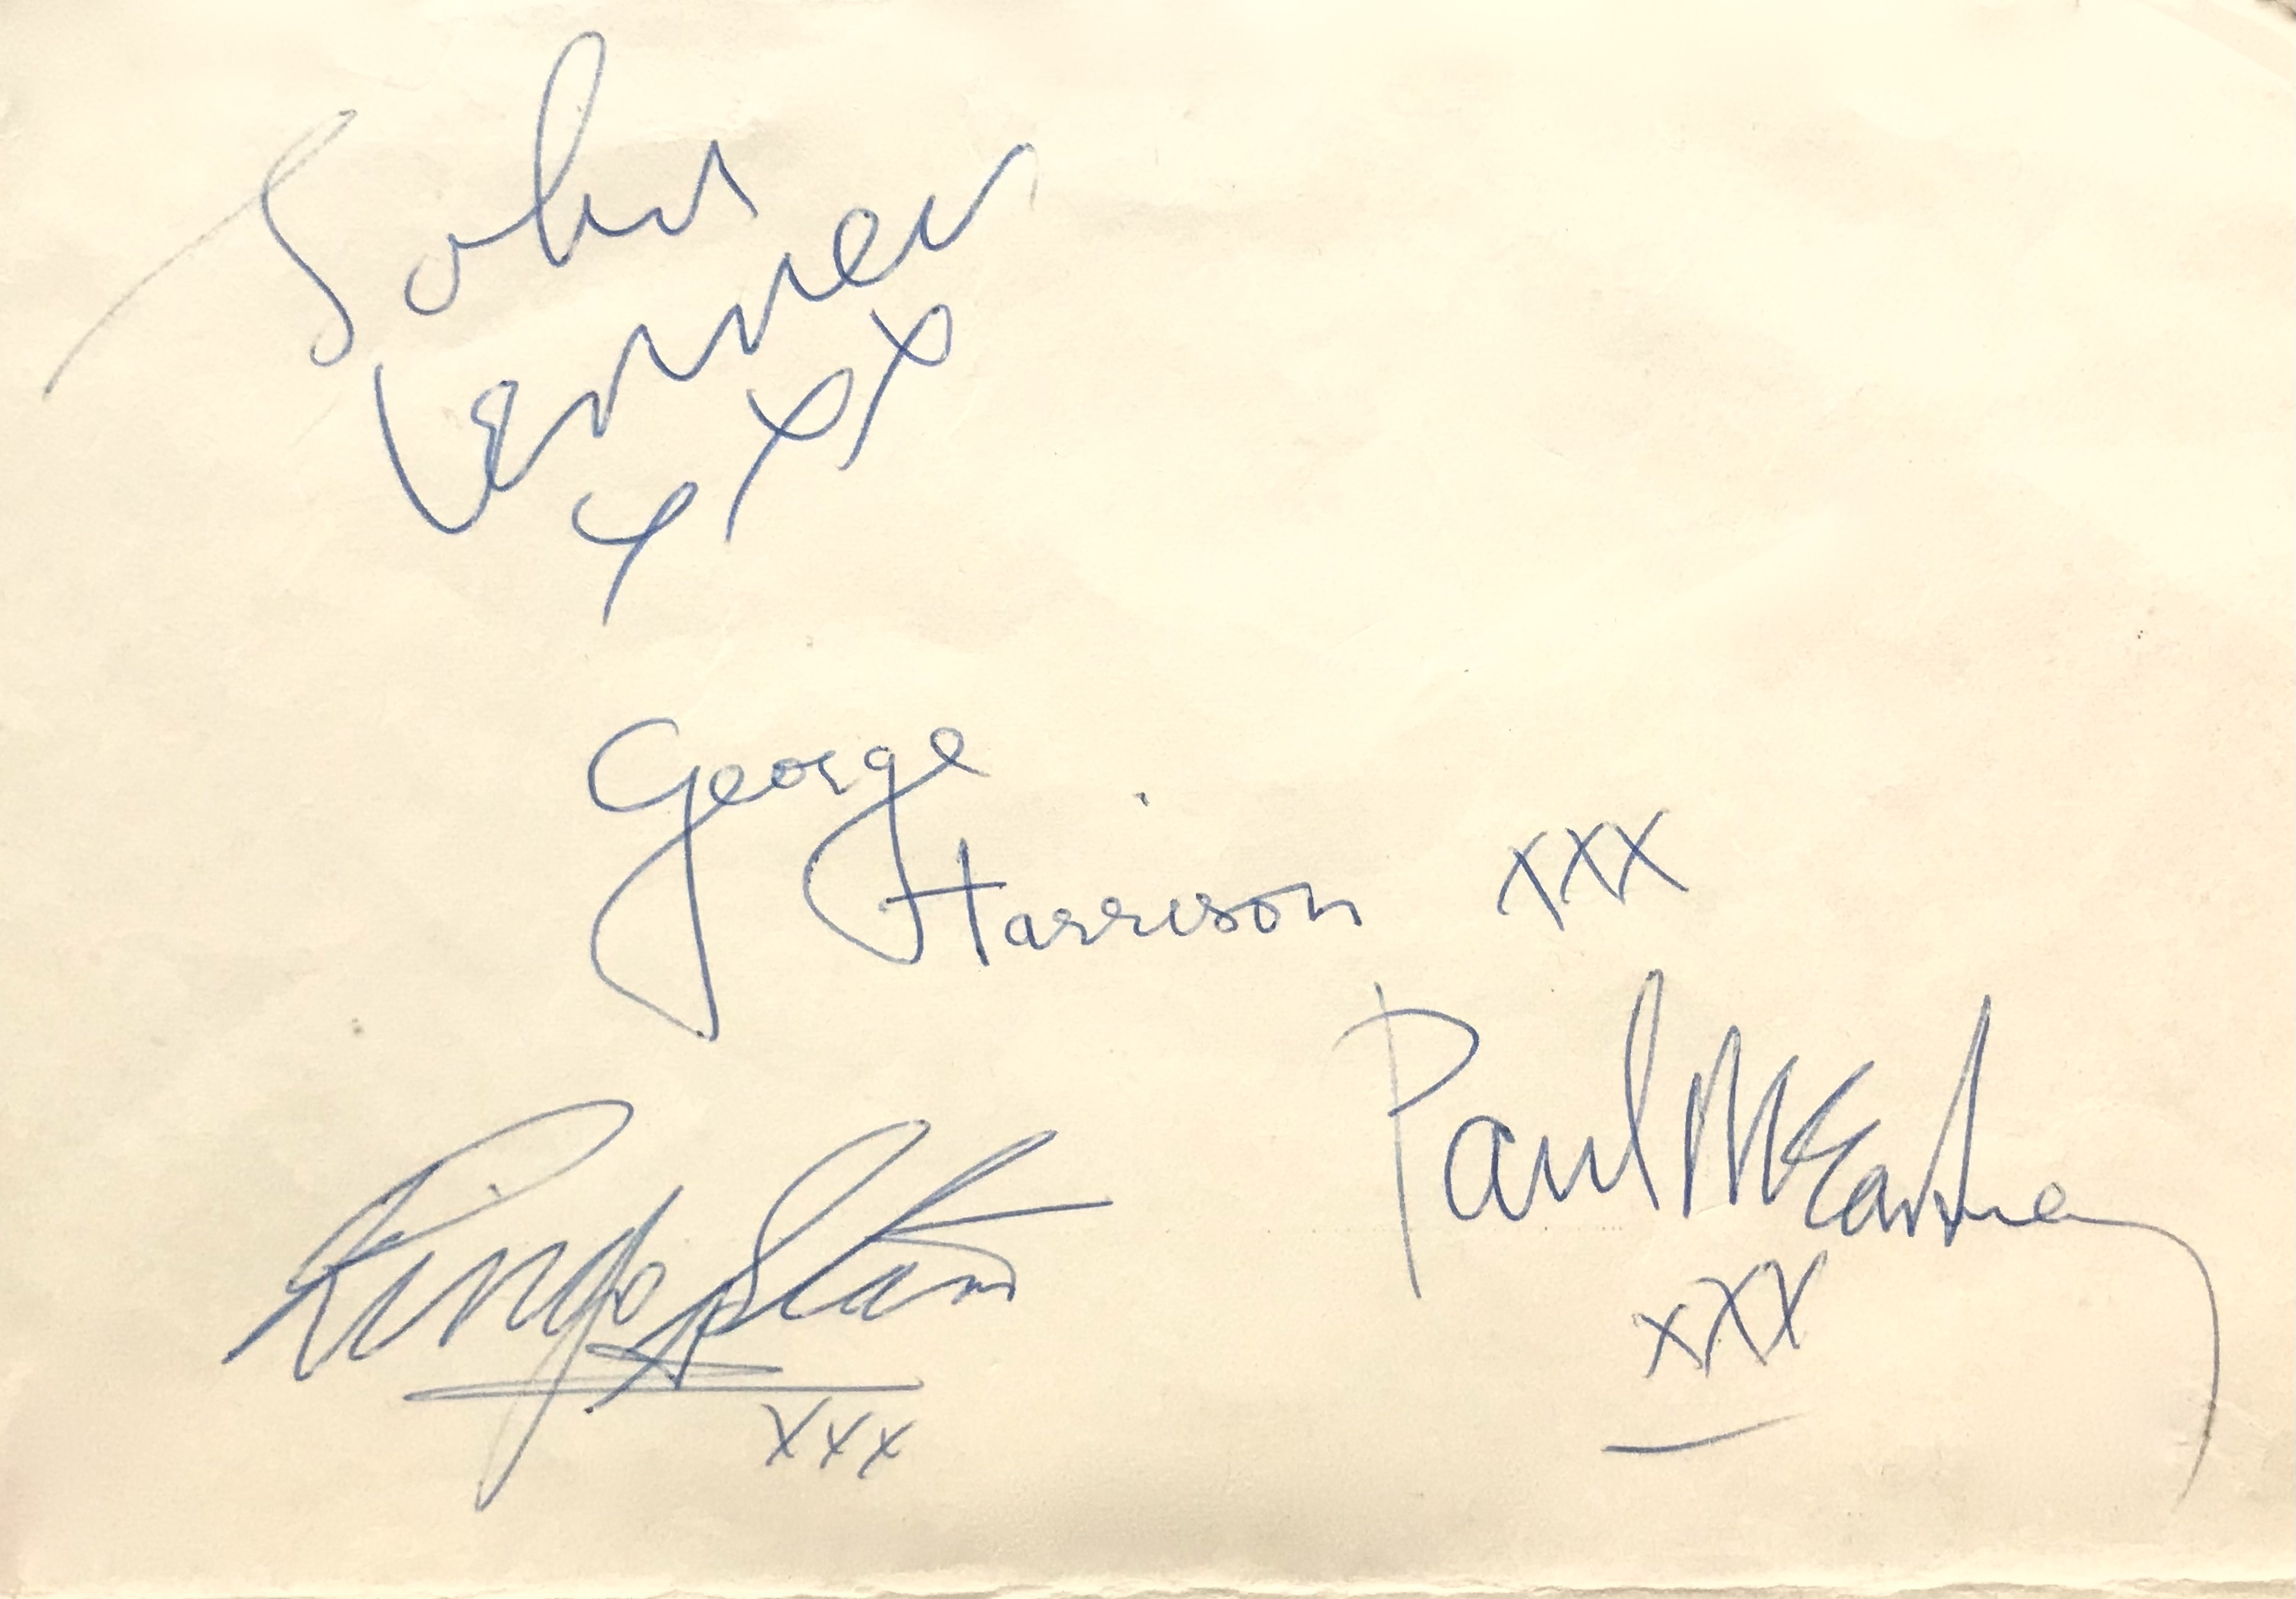 John
Lennon
xxx
George
Harrison xxx
Paul McCartney
xxx
Ringo Starr
xxx